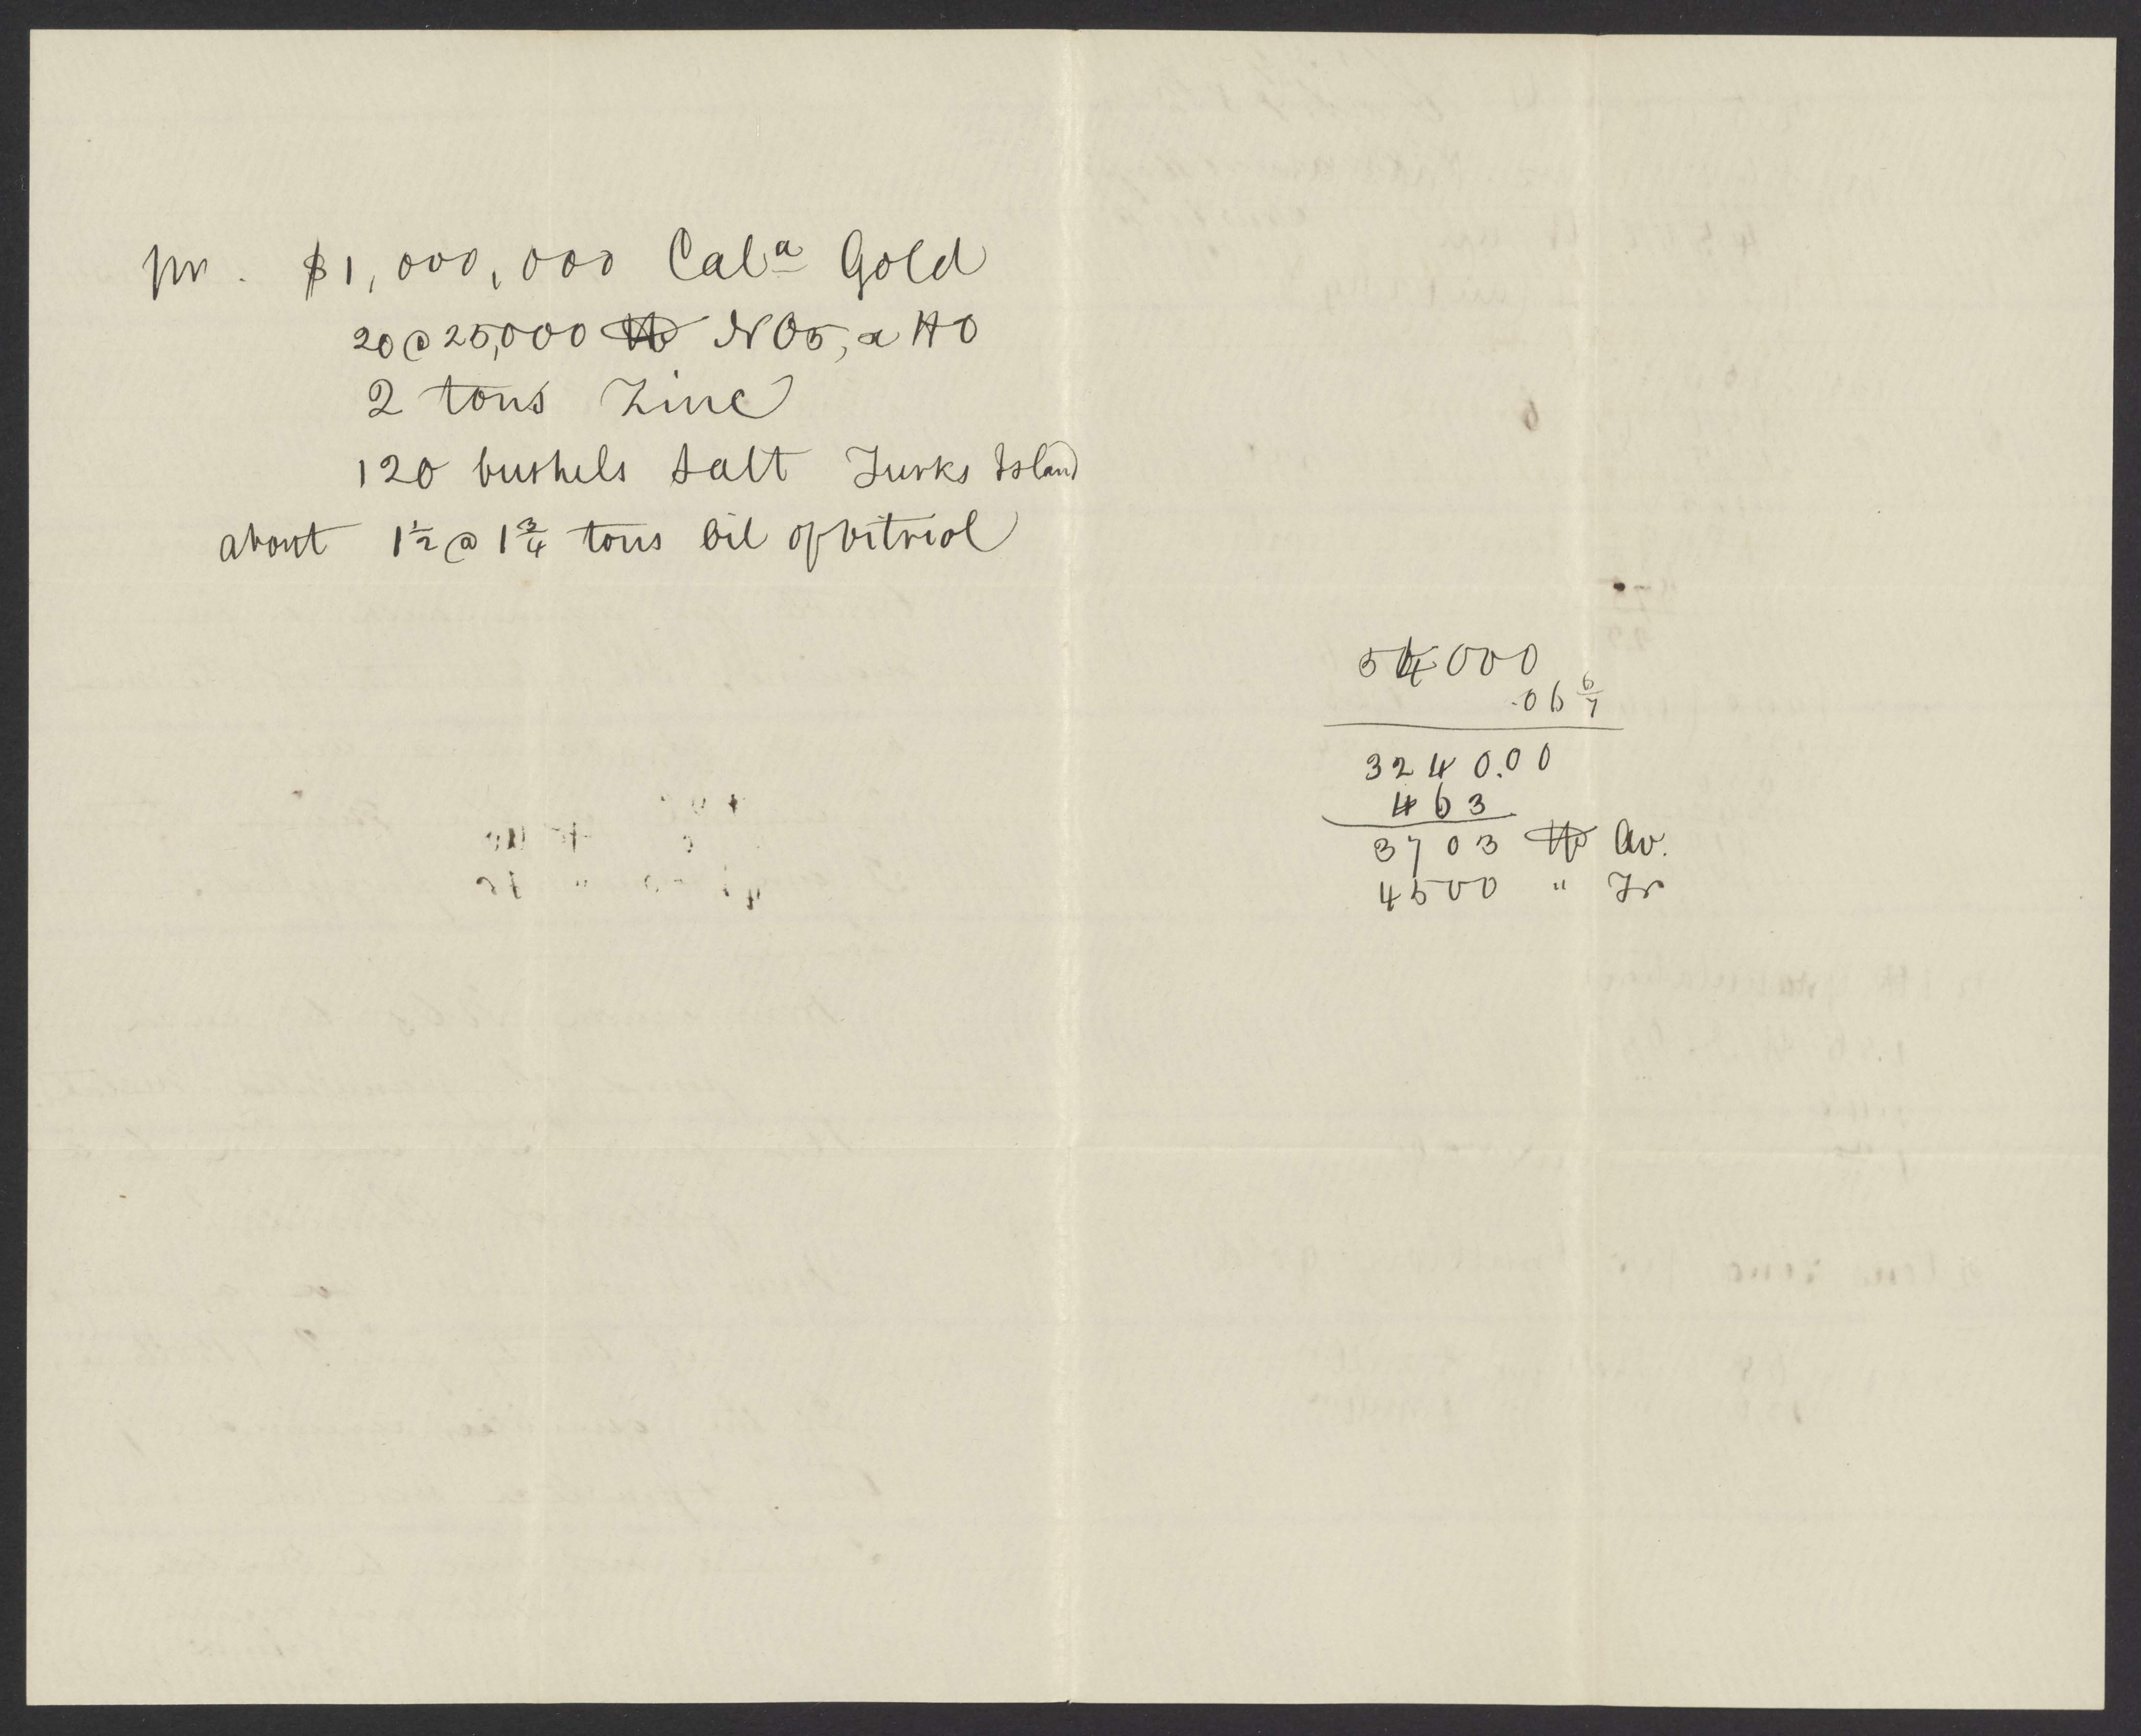 pr. $1,000,000 Cala Gold
20 @ 25,000 ℔ NO5, a HO
2 tons Zinc
120 bushels Salt Turks Island
about 1 1/2 @ 1 3/4 tons Oil of vitriol
54000
.06 6/7
3240.00
463
3703 ℔ Av.
4500 " Tr